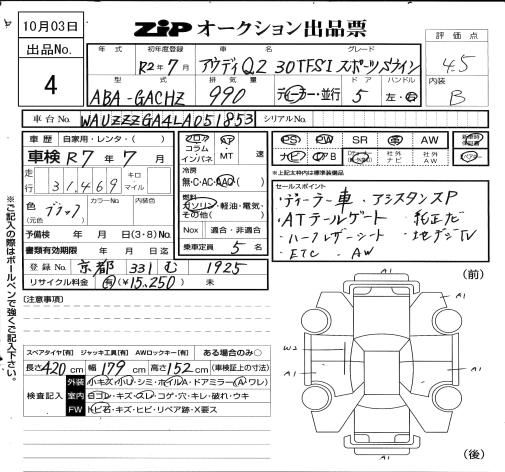 10月03日
ZIP オークション出品票
評価点
4.5
内装
B
出品No.
4
年式 初年度登録 車名 グレード
R2年7月 アウディQ2 30TFSI スポーツSライン
型式 排気量 ドア ハンドル
ABA-GACHZ 990 ディーラー・並行 5 左・右
車台No. WAUZZZGA4LA051853 シリアルNo.
車歴 自家用・レンタ・( )
車検 R7年7月
走行 31,469 キロ マイル
色 (元色) ブラック カラーNo. 内装色
予備検 年 月 日(3・8)No.
書類有効期限 年 月 日迄
登録No. 京都 331 む 1925
リサイクル料金 有(¥15,250) 未
フロア コラム インパネ AT・MT 速
冷房
無・C・AC・AAC
燃料
ガソリン・軽油・電気・その他( )
Nox 適合・非適合
乗車定員 5 名
PS PW SR 革 AW
ナビ エアB 社外ナビ 社外AW
新車時保証書
※上記太枠内は標準装備品
セールスポイント
・ディーラー車・アシスタンスP
・ATテールゲート・純正ナビ
・ハーフレザーシート・地デジTV
・ETC・AW
※ご記入の際はボールペンで強くご記入下さい。
(注意事項)
スペアタイヤ[有] ジャッキ工具[有] AWロックキー[有] ある場合のみ○
長さ420cm 幅179cm 高さ152cm (車検証上の寸法)
検査記入
外装 小キズ・小U・シミ・ホイルA・ドアミラー(A・ワレ)
室内 ヨゴレ・キズ・スレ・コゲ・穴・キレ・破れ・ウキ
FW トビ石・キズ・ヒビ・リペア跡・X要ス
(前)
A1
A1
W2
A1
A1
(後)